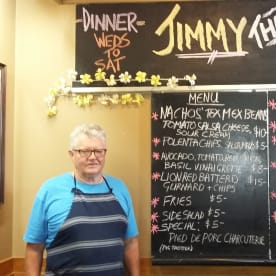 -DINNER-
WEDS
TO
SAT
JIMMY TH
MENU
NACHOS' TEX MEX BEANS
TOMATO SALSA CHEESE,
SOUR CREAM $10
POLENTA CHIPS, $5
AVOCADO, TOMATO,
BASIL VINAIGRETTE $8-
LION RED BATTERED $15-
GURNARD + CHIPS
FRIES $5-
SIDE SALAD $5-
SPECIAL:
PIED DE PORC CHARCUTERIE
(PIG TROTTER)